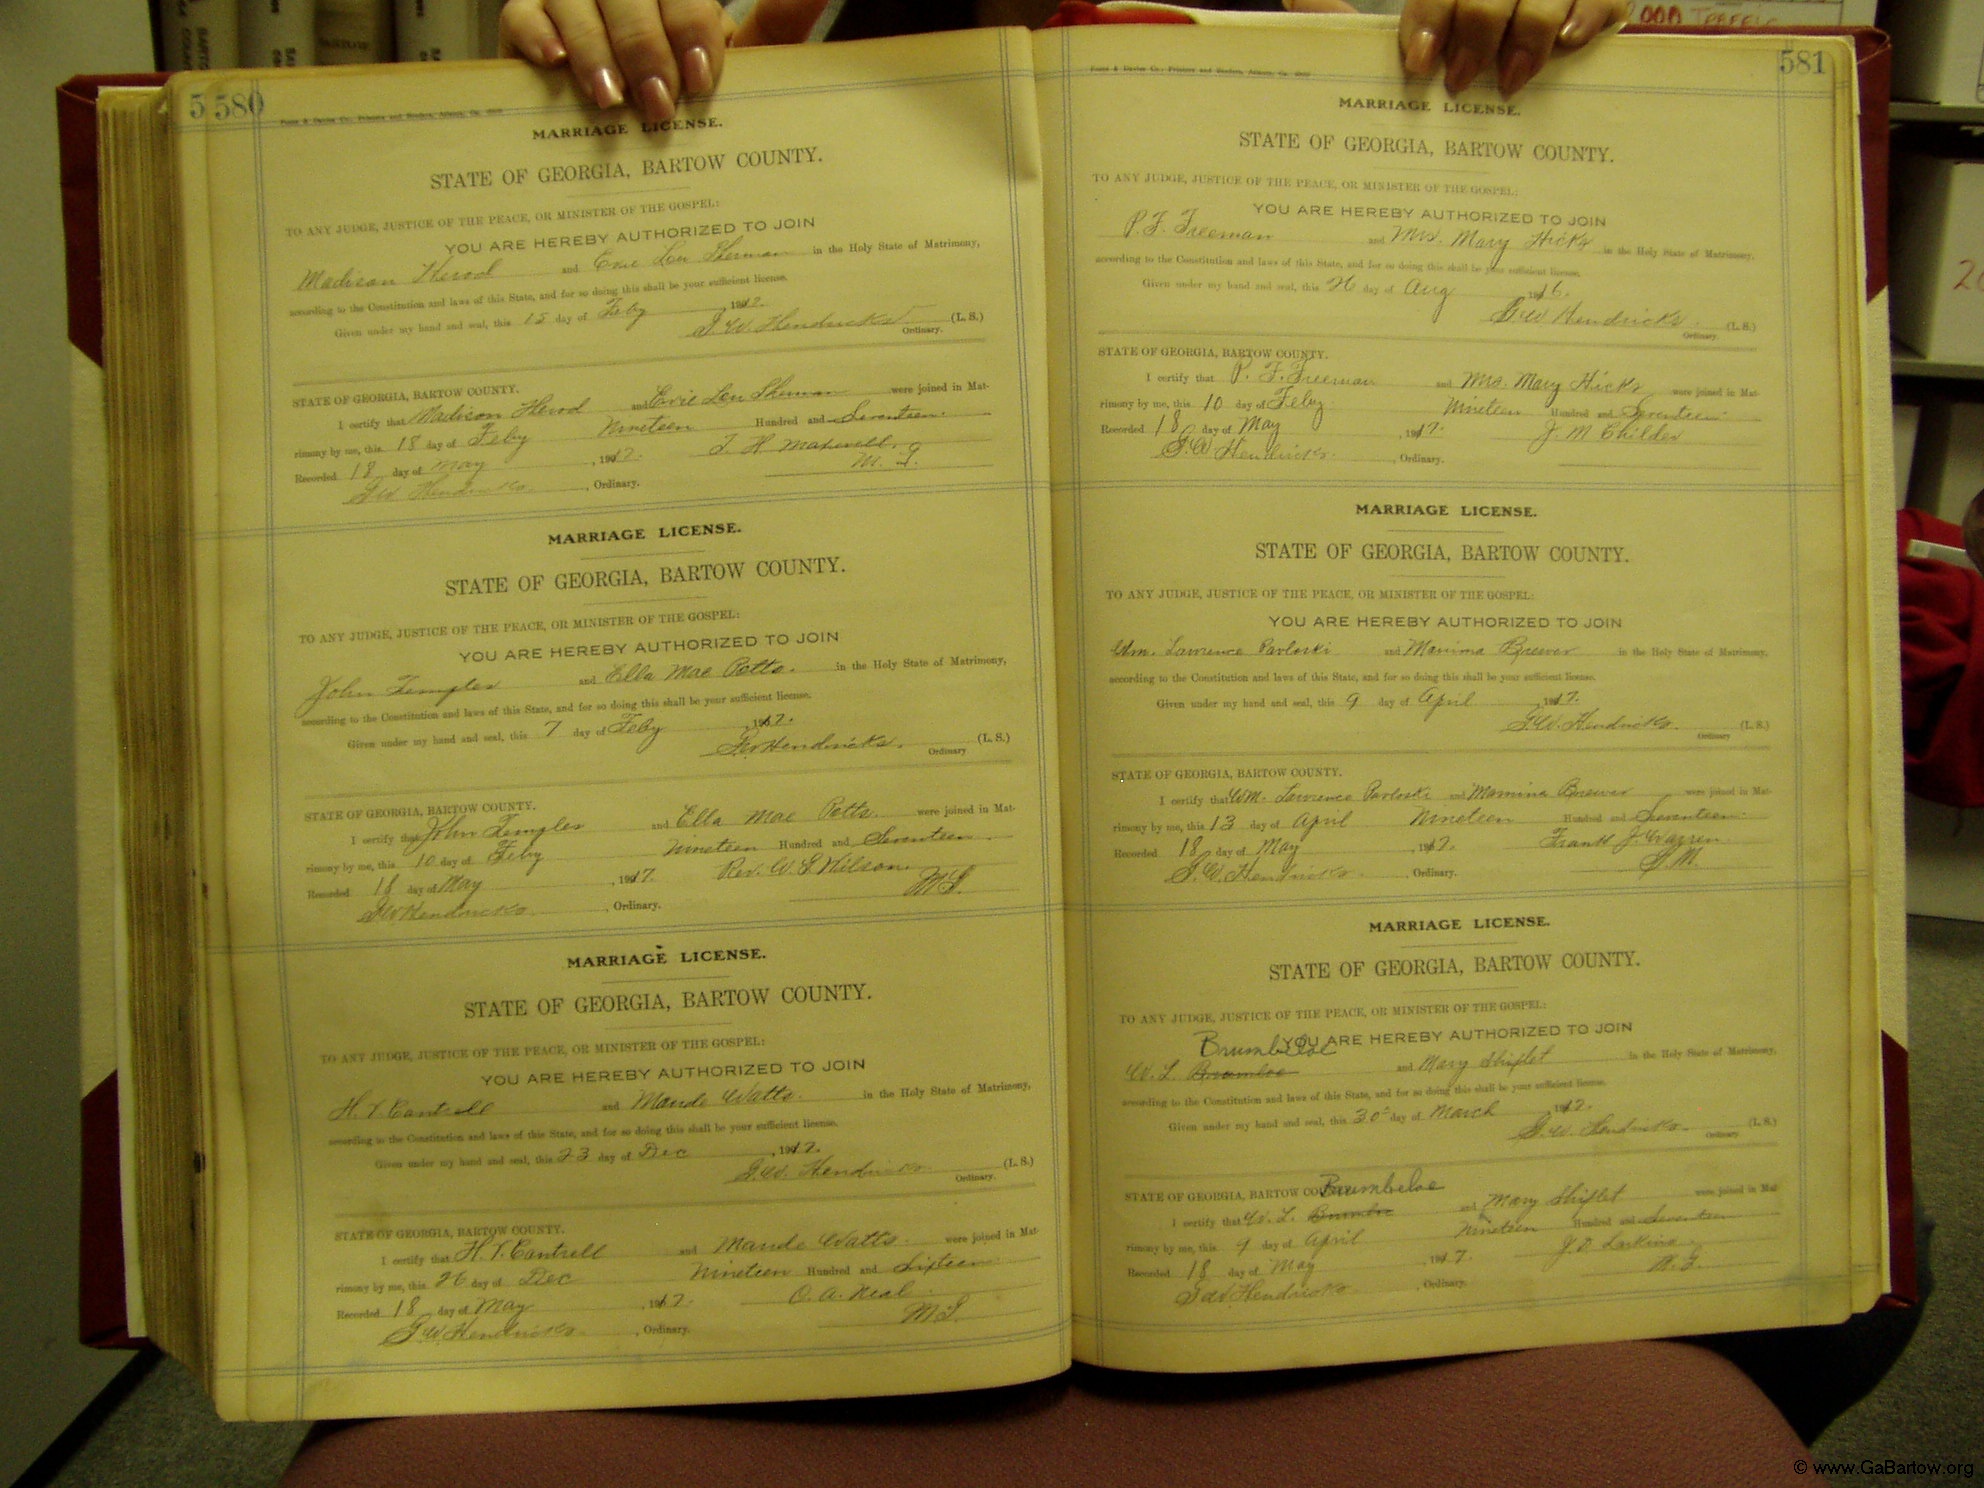 580
MARRIAGE LICENSE.
STATE OF GEORGIA, BARTOW COUNTY.
TO ANY JUDGE, JUSTICE OF THE PEACE, OR MINISTER OF THE GOSPEL:
YOU ARE HEREBY AUTHORIZED TO JOIN
Madison Herod and Evie Lou Sherman in the Holy State of Matrimony,
according to the Constitution and laws of this State, and for so doing this shall be your sufficient license.
Given under my hand and seal, this 15 day of Feby, 1917.
G W Hendricks (L. S.)
Ordinary.
STATE OF GEORGIA, BARTOW COUNTY.
I certify that Madison Herod and Evie Lou Sherman were joined in Mat-
rimony by me, this 18 day of Feby Nineteen Hundred and Seventeen.
Recorded 18 day of May, 1917. T H Maxwell,
G W Hendricks, Ordinary. M. G.
MARRIAGE LICENSE.
STATE OF GEORGIA, BARTOW COUNTY.
TO ANY JUDGE, JUSTICE OF THE PEACE, OR MINISTER OF THE GOSPEL:
YOU ARE HEREBY AUTHORIZED TO JOIN
John Templer and Ella Mae Potts. in the Holy State of Matrimony,
according to the Constitution and laws of this State, and for so doing this shall be your sufficient license.
Given under my hand and seal, this 7 day of Feby, 1917.
G W Hendricks. (L. S.)
Ordinary
STATE OF GEORGIA, BARTOW COUNTY.
I certify that John Templer and Ella Mae Potts. were joined in Mat-
rimony by me, this 10 day of Feby Nineteen Hundred and Seventeen.
Recorded 18 day of May, 1917. Rev. W. S. Wilson.
G W Hendricks, Ordinary. M G.
MARRIAGE LICENSE.
STATE OF GEORGIA, BARTOW COUNTY.
TO ANY JUDGE, JUSTICE OF THE PEACE, OR MINISTER OF THE GOSPEL:
YOU ARE HEREBY AUTHORIZED TO JOIN
H. T. Cantrell and Maude Watts. in the Holy State of Matrimony,
according to the Constitution and laws of this State, and for so doing this shall be your sufficient license.
Given under my hand and seal, this 23 day of Dec, 1917.
G. W. Hendricks (L. S.)
Ordinary.
STATE OF GEORGIA, BARTOW COUNTY.
I certify that H. T. Cantrell and Maude Watts. were joined in Mat-
rimony by me, this 26 day of Dec Nineteen Hundred and Sixteen
Recorded 18 day of May, 1917. O. A. Neal.
G. W. Hendricks, Ordinary. M G.
581
MARRIAGE LICENSE.
STATE OF GEORGIA, BARTOW COUNTY.
TO ANY JUDGE, JUSTICE OF THE PEACE, OR MINISTER OF THE GOSPEL:
YOU ARE HEREBY AUTHORIZED TO JOIN
P. F. Freeman and Mrs. Mary Hicks in the Holy State of Matrimony,
according to the Constitution and laws of this State, and for so doing this shall be your sufficient license.
Given under my hand and seal, this 26 day of Aug 1916.
G. W Hendricks. (L. S.)
Ordinary.
STATE OF GEORGIA, BARTOW COUNTY.
I certify that P. F. Freeman and Mrs. Mary Hicks were joined in Mat-
rimony by me, this 10 day of Feby Nineteen Hundred and Seventeen.
Recorded 18 day of May, 1917. J. M Childer
G. W. Hendricks., Ordinary.
MARRIAGE LICENSE.
STATE OF GEORGIA, BARTOW COUNTY.
TO ANY JUDGE, JUSTICE OF THE PEACE, OR MINISTER OF THE GOSPEL:
YOU ARE HEREBY AUTHORIZED TO JOIN
Wm. Lawrence Pavloski and Mamina Brewer in the Holy State of Matrimony,
according to the Constitution and laws of this State, and for so doing this shall be your sufficient license.
Given under my hand and seal, this 9 day of April 1917.
G. W. Hendricks. (L. S.)
Ordinary
STATE OF GEORGIA, BARTOW COUNTY.
I certify that Wm. Lawrence Pavloski and Mamina Brewer were joined in Mat-
rimony by me, this 13 day of April Nineteen Hundred and Seventeen.
Recorded 18 day of May, 1917. Frank J. Warren
G. W. Hendricks., Ordinary.
MARRIAGE LICENSE.
STATE OF GEORGIA, BARTOW COUNTY.
TO ANY JUDGE, JUSTICE OF THE PEACE, OR MINISTER OF THE GOSPEL:
YOU ARE HEREBY AUTHORIZED TO JOIN
Brumbeloe
W. L. Brumloe and Mary Shiflet in the Holy State of Matrimony,
according to the Constitution and laws of this State, and for so doing this shall be your sufficient license.
Given under my hand and seal, this 30 day of March 1917.
G. W. Hendricks. (L. S.)
Ordinary
STATE OF GEORGIA, BARTOW COUNTY.
Brumbeloe
I certify that W. L. and Mary Shiflet were joined in Mat
rimony by me, this 9 day of April Nineteen Hundred and Seventeen
Recorded 18 day of May, 1917. J. D. Larkins.
G W Hendricks, Ordinary. M. G.
© www.GaBartow.org